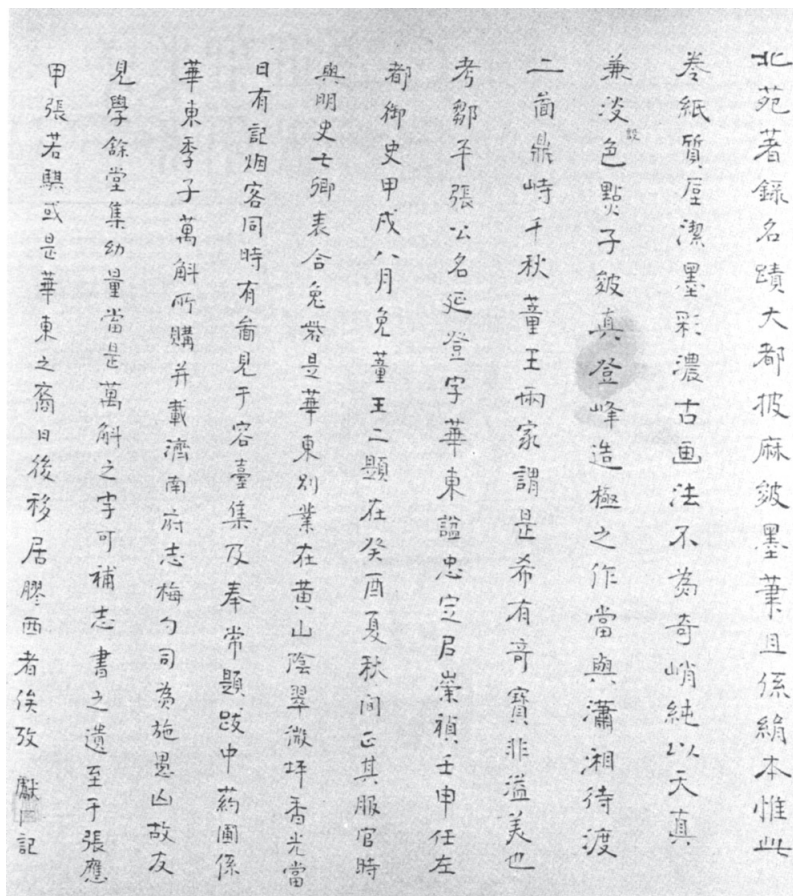 北苑著錄名蹟大都披麻皴墨筆且係絹本惟此
卷紙質堅潔墨彩濃古画法不為奇峭純以天真
兼淡設色點子皴真登峰造極之作當與瀟湘待渡
二啚鼎峙千秋董王兩家謂是希有奇寶非溢美也
考鄒平張公名延登字華東諡忠定居崇禎壬申任左
都御史甲戌八月免董王二題在癸酉夏秋間正其服官時
與明史七卿表合兔砦是華東別業在黃山陰翠微坪香光當
日有記烟客同時有啚見于容臺集及奉常題跋中葯圃係
華東季子萬斛所購并載濟南府志梅勺司為施愚山故友
見學餘堂集幼量當是萬斛之字可補志書之遺至于張應
甲張若騏或是華東之裔日後移居膠西者俟攷　獻記